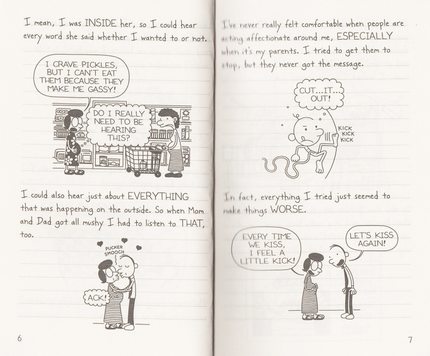 I mean, I was INSIDE her, so I could hear
every word she said whether I wanted to or not.
I CRAVE PICKLES,
BUT I CAN'T EAT
THEM BECAUSE THEY
MAKE ME GASSY!
DO I REALLY
NEED TO BE
HEARING
THIS?
I could also hear just about EVERYTHING
that was happening on the outside. So when Mom
and Dad got all mushy I had to listen to THAT,
too.
PUCKER
SMOOCH
ACK!
6
I've never really felt comfortable when people are
acting affectionate around me, ESPECIALLY
when it's my parents. I tried to get them to
stop, but they never got the message.
CUT...IT...
OUT!
KICK
KICK
KICK
In fact, everything I tried just seemed to
make things WORSE.
EVERY TIME
WE KISS,
I FEEL A
LITTLE KICK!
LET'S KISS
AGAIN!
7